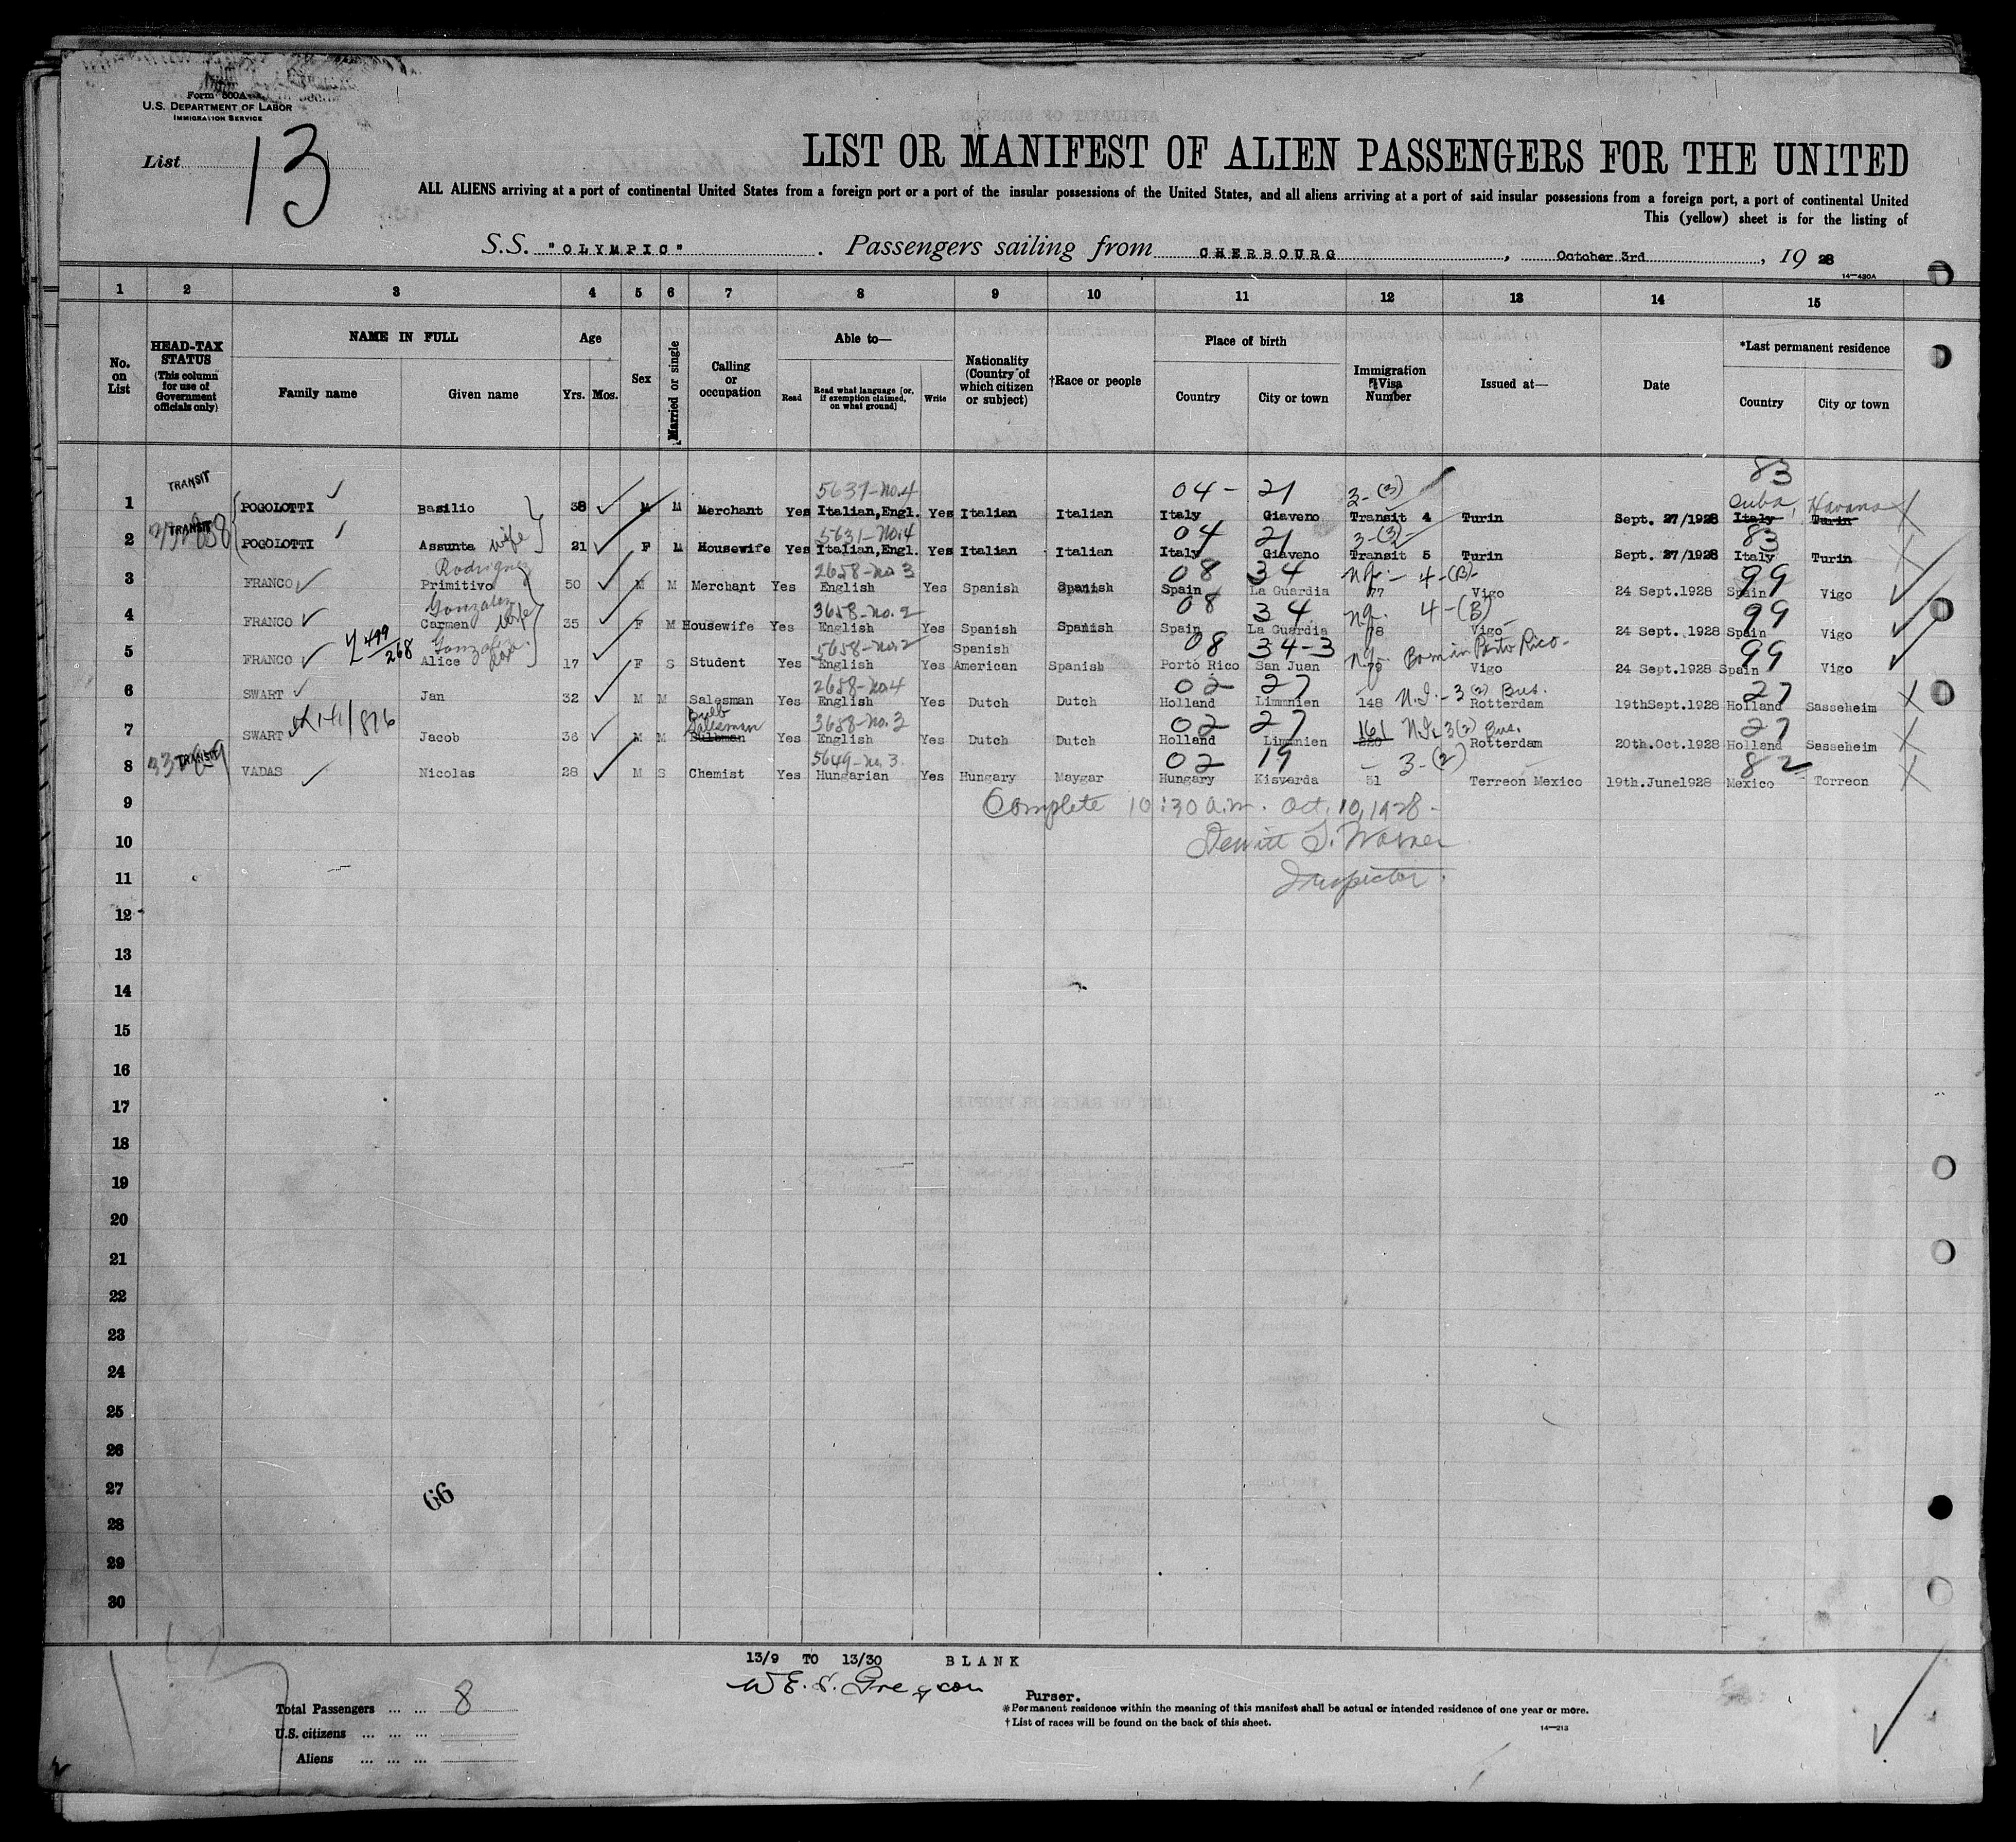 Form 500A
U.S. DEPARTMENT OF LABOR
IMMIGRATION SERVICE
List 13
LIST OR MANIFEST OF ALIEN PASSENGERS FOR THE UNITED
ALL ALIENS arriving at a port of continental United States from a foreign port or a port of the insular possessions of the United States, and all aliens arriving at a port of said insular possessions from a foreign port, a port of continental United
This (yellow) sheet is for the listing of
S.S. "OLYMPIC". Passengers sailing from CHERBOURG, October 3rd, 1928
14—480A
1 2 3 4 5 6 7 8 9 10 11 12 13 14 15
No. on List
HEAD-TAX STATUS (This column for use of Government officials only)
NAME IN FULL
Family name Given name
Age
Yrs. Mos.
Sex
Married or single
Calling or occupation
Able to—
Read Read what language [or, if exemption claimed, on what ground] Write
Nationality (Country of which citizen or subject)
†Race or people
Place of birth
Country City or town
Immigration Visa Number
Issued at—
Date
*Last permanent residence
Country City or town
TRANSIT 5637-No.4 04- 21 3-(3) 83
Cuba, Havana
1 POGOLOTTI Basilio 38 M M Merchant Yes Italian,Engl. Yes Italian Italian Italy Giaveno Transit 4 Turin Sept. 27/1928 Italy Turin
TRANSIT 5631-No.4 04 21 3-(3) 83
2 POGOLOTTI Assunta wife 21 F M Housewife Yes Italian,Engl. Yes Italian Italian Italy Giaveno Transit 5 Turin Sept. 27/1928 Italy Turin
Rodriguez 2658-no 3 08 34 nq.- 4-(B)- 99
3 FRANCO Primitivo 50 M M Merchant Yes English Yes Spanish Spanish Spain La Guardia 77 Vigo 24 Sept.1928 Spain Vigo
Gonzalez 3658-no.2 08 34 nq. 4-(B) 99
4 FRANCO Carmen wife 35 F M Housewife Yes English Yes Spanish Spanish Spain La Guardia 78 Vigo 24 Sept. 1928 Spain Vigo
499/268 5658-no.2 Spanish 08 34-3 nq- Born in Porto Rico- 99
5 FRANCO Alice 17 F S Student Yes English Yes American Spanish Porto Rico San Juan 79 Vigo 24 Sept.1928 Spain Vigo
2658-no.4 02 27 N.I.-3(2) Bus. 27
6 SWART Jan 32 M M Salesman Yes English Yes Dutch Dutch Holland Limmnien 148 Rotterdam 19thSept.1928 Holland Sasseheim
Bulb Salesman 3658-no.2 02 27 161 N.I. 3(2) Bus. 27
7 SWART Jacob 36 M M Bulbman Yes English Yes Dutch Dutch Holland Limmnien Rotterdam 20th.Oct.1928 Holland Sasseheim
TRANSIT 5649-no.3 02 19 - 3-(2) 82
8 VADAS Nicolas 28 M S Chemist Yes Hungarian Yes Hungary Maygar Hungary Kisvarda 51 Terreon Mexico 19th.June1928 Mexico Torreon
9 Complete 10:30 a.m. Oct. 10, 1928-
10 Dewitt S. Warner
11 Inspector.
12
13
14
15
16
17
18
19
20
21
22
23
24
25
26
27
66
28
29
30
13/9 TO 13/30 BLANK
Purser.
Total Passengers ... ... 8
U.S. citizens ... ... ...
Aliens ... ... ...
*Permanent residence within the meaning of this manifest shall be actual or intended residence of one year or more.
†List of races will be found on the back of this sheet.
14—213